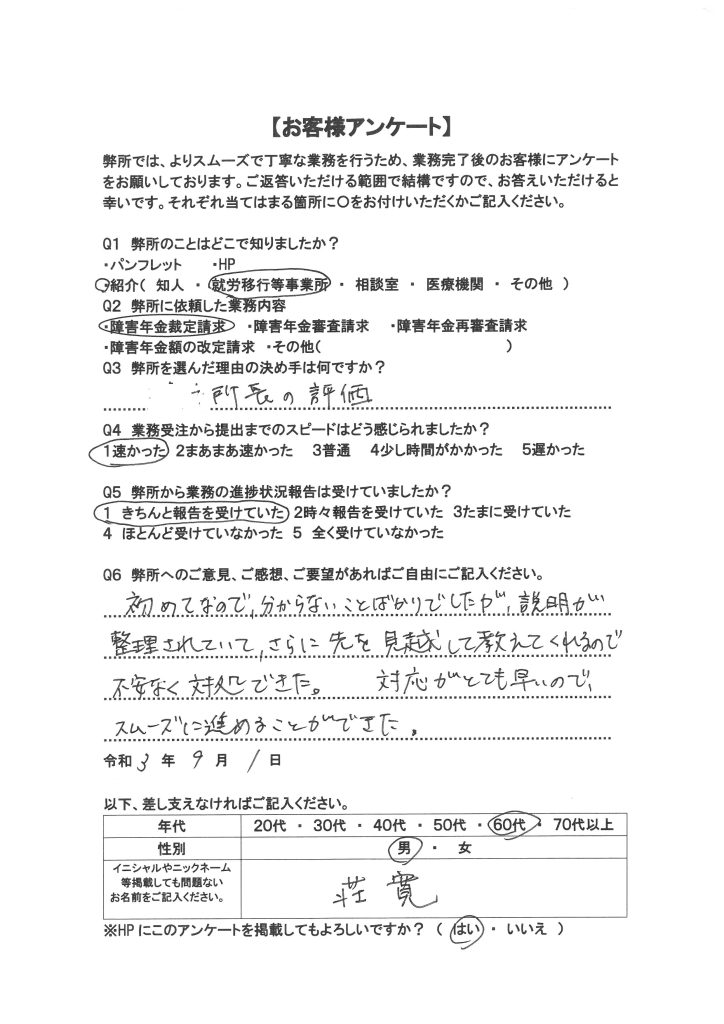 【お客様アンケート】
弊所では、よりスムーズで丁寧な業務を行うため、業務完了後のお客様にアンケート
をお願いしております。ご返答いただける範囲で結構ですので、お答えいただけると
幸いです。それぞれ当てはまる箇所に○をお付けいただくかご記入ください。
Q1 弊所のことはどこで知りましたか？
・パンフレット ・HP
・紹介（ 知人 ・ 就労移行等事業所 ・ 相談室 ・ 医療機関 ・ その他 ）
Q2 弊所に依頼した業務内容
・障害年金裁定請求 ・障害年金審査請求 ・障害年金再審査請求
・障害年金額の改定請求 ・その他（ ）
Q3 弊所を選んだ理由の決め手は何ですか？
所長の評価
Q4 業務受注から提出までのスピードはどう感じられましたか？
1速かった 2まあまあ速かった 3普通 4少し時間がかかった 5遅かった
Q5 弊所から業務の進捗状況報告は受けていましたか？
1 きちんと報告を受けていた 2時々報告を受けていた 3たまに受けていた
4 ほとんど受けていなかった 5 全く受けていなかった
Q6 弊所へのご意見、ご感想、ご要望があればご自由にご記入ください。
初めてなので、分からないことばかりでしたが、説明が
整理されていて、さらに先を見越して教えてくれるので
不安なく対処できた。 対応がとても早いので、
スムーズに進めることができた。
令和 3 年 9 月 1 日
以下、差し支えなければご記入ください。
年代 20代 ・ 30代 ・ 40代 ・ 50代 ・ 60代 ・ 70代以上
性別 男 ・ 女
イニシャルやニックネーム
等掲載しても問題ない
お名前をご記入ください。
荘寛
※HPにこのアンケートを掲載してもよろしいですか？（ はい ・ いいえ ）